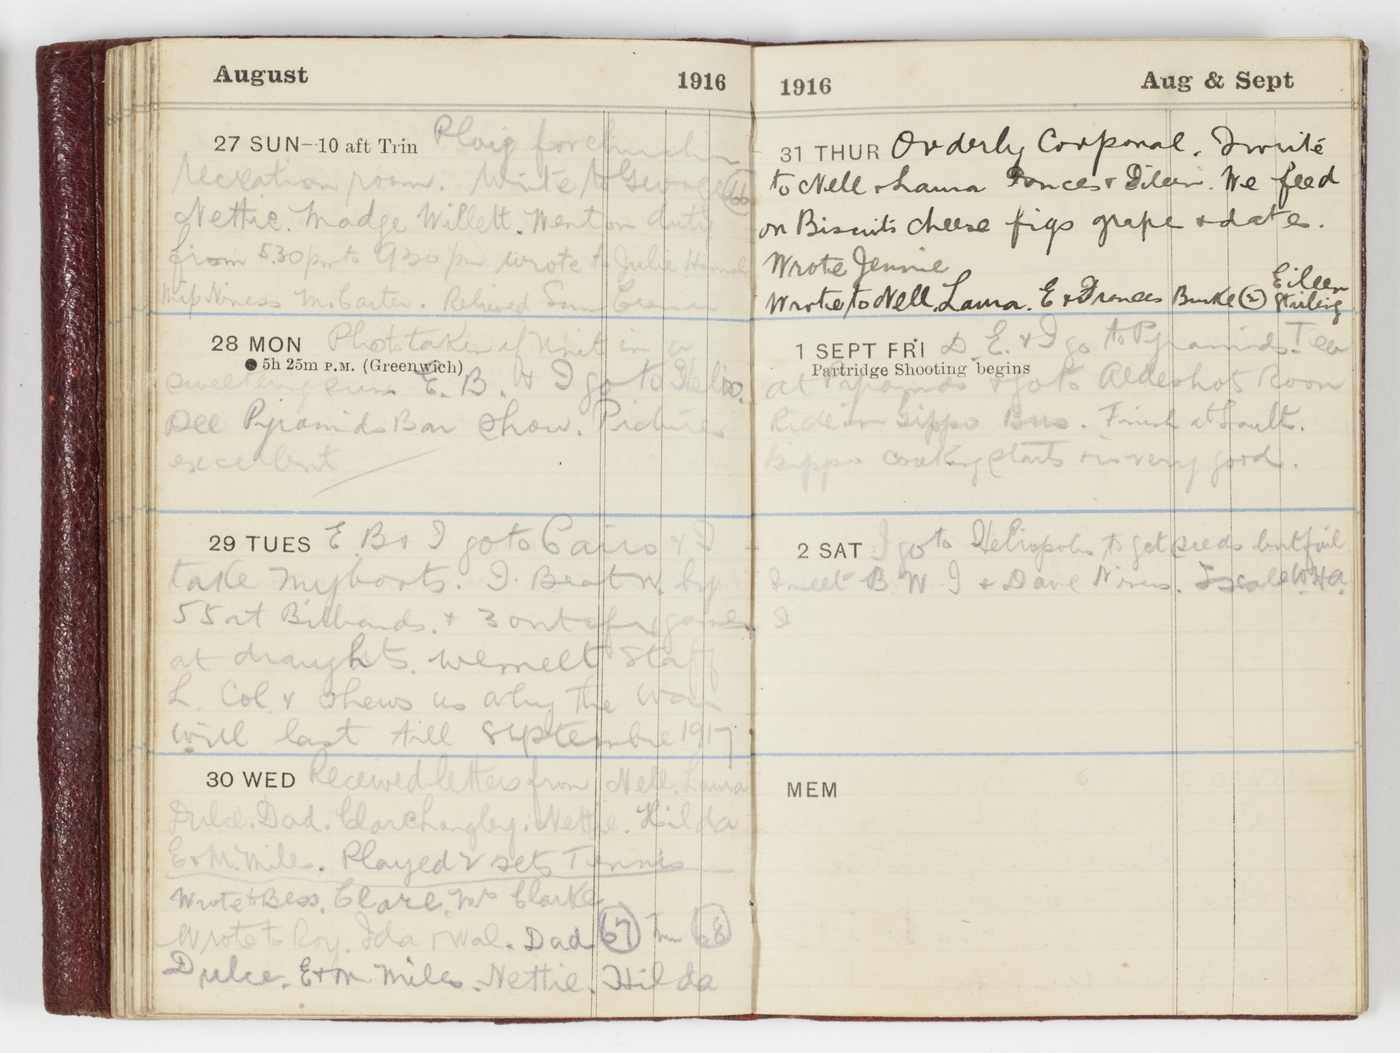 August 1916
27 SUN—10 aft Trin Plaig for church in
recreation room. Write to George (66)
Nettie. Madge Willett. Went on duty
from 5.30 pm to 9.30 pm wrote to Julie
M. Carter. Relieved Sam
28 MON Photo taken of Unit in a
● 5h 25m P.M. (Greenwich)
sweltering sun E. B. W & I go to Helio.
see Pyramids Bar Show. Pictures
excellent
29 TUES E B & I go to Cairo & I
take my boots. I Beat W. by
55 at Billiards. & 3 out of games
at draughts. We meet Staff
L. Col & shews us why the War
will last till Septembre 1917
30 WED Received letters from Nell. Laura
Dulce. Dad. Clare Langley. Nettie. Hilda
E & M. Miles. Played 2 sets Tennis
Wrote to Bess. Clare. Mrs Clarke
Wrote to Roy. Ida & Wal. Dad (67) (68)
Dulce. E & M Miles. Nettie. Hilda
1916 Aug & Sept
31 THUR Orderly Corporal. I write
to Nell & Laura Frances & Eileen. We feed
on Biscuits cheese figs grape & dates.
Wrote Jennie
Wrote to Nell, Laura. E & Frances Burke (2) Eileen
Stirling
1 SEPT FRI D. E. & I go to Pyramids. Tea
Partridge Shooting begins
at Pyramids & go to Aldeshot Room
Ride in Gippo Bus. Finish at Sault's.
Gippo cooking starts & is very good.
2 SAT I go to Heliopolis to get pieds but fail
I meet B. W. J & Dave Nivens.
I
MEM